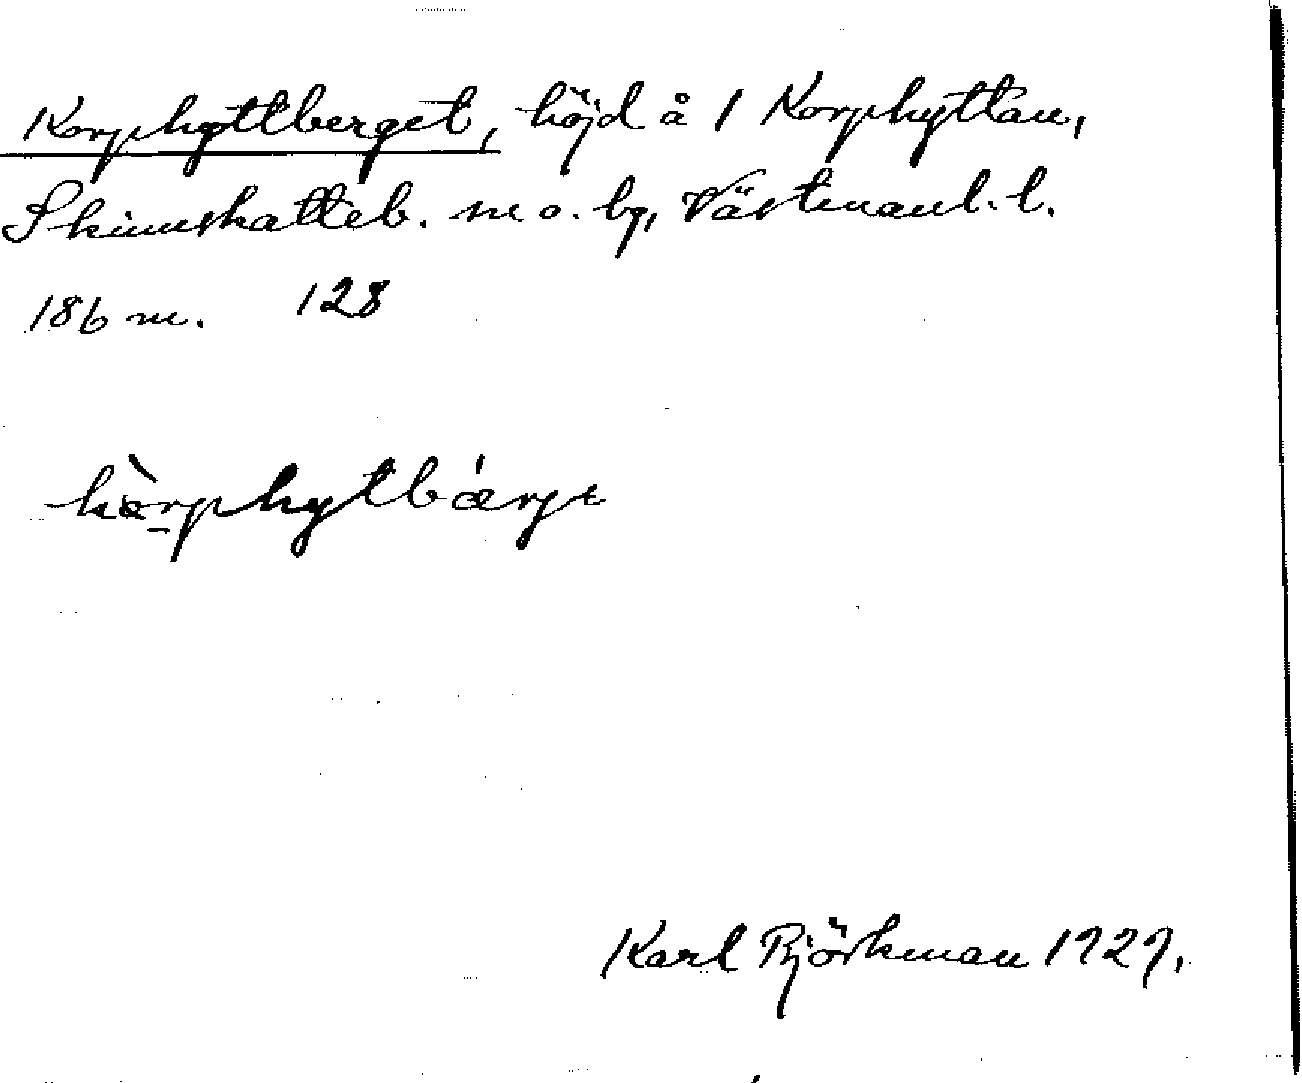 Korphyttberget, höjd å 1 Korphyttan,
Skinnskatteb. sn o. bg, Västmanl. l.
186 m. 128
kàrphytbǽrjɛ
Karl Björkman 1929.